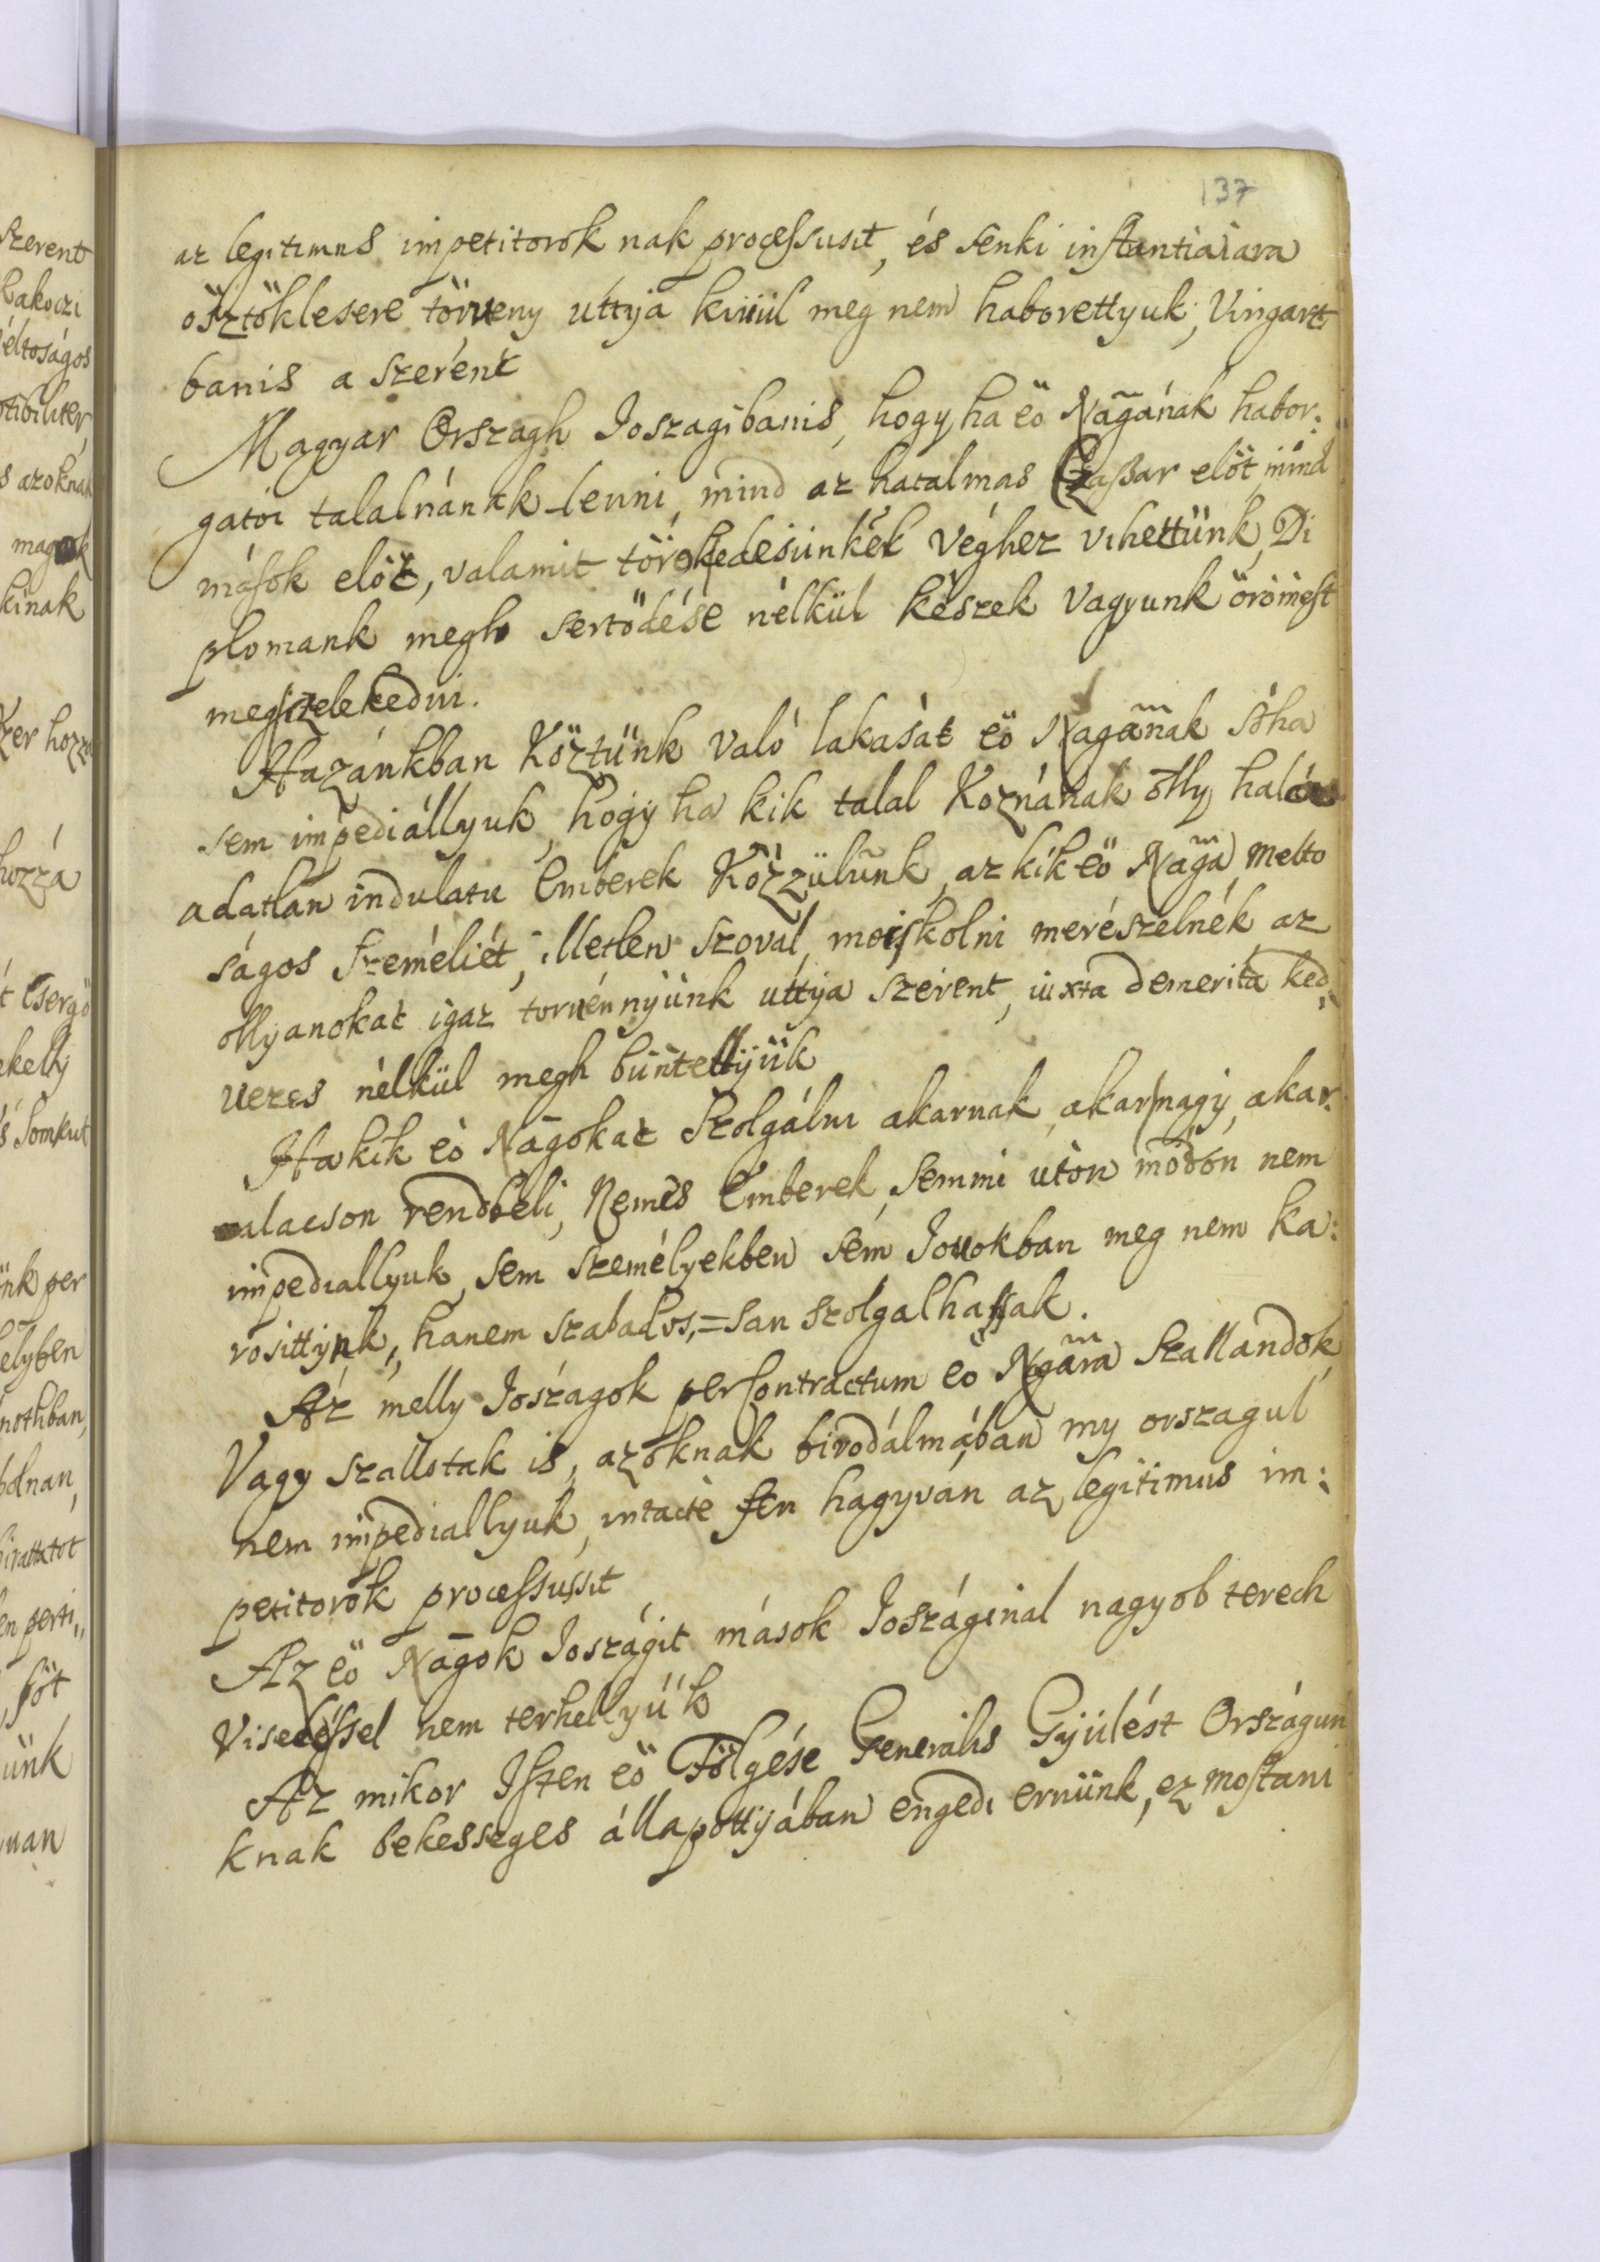 137
az legitimus impetitoroknak processusit, és senki instantiaiara
ösztöklesere törveny uttya kiuül meg nem haborettyuk, Vingart
banis a szerént
Magyar Orszagh Ioszagibanis, hogy ha eö Nagának habor:
gatoi talalnának lenni, mind az hatalmas Czaßar elöt, mind
mások elöt, valamit törekedesünkkel véghez vihettünk, Di
plomank megh sertödése nélkül készek vagyunk örömest
megczelekedni.
Hazánkban Köztünk való lakasát eö Nagának soha
sem impediállyuk, hogy ha kik talal Koznának olly halá
adatlan indulatu Emberek Közzülünk, az kik eö Naga melto
ságos személiét, illetlen szoval, moczkolni merészelnék az
ollyanokat igaz torvénnyünk uttya szerent, iuxta demerita ked,
uezes nélkül megh büntettyük
Ha kik eö Nagokat szolgálni akarnak, akar nagy, akar
alacson rendbeli, Nemes Emberek, semmi uton modon nem
impediallyuk, sem személyekben sem Iouokban meg nem ka:
rosittyuk, hanem szabados,=san szolgalhassak.
Az melly Ioszagok per contractum eö Ngára szallandok
Vagy szallotak is, azoknak birodálmában my orszagul
nem impediallyuk, intacte fen hagyván az legitimus im:
petitorok processussit
Az eö Nagok Ioszágit mások Ioszáginal nagyob terech
Viseléssel nem terhellyük
Az mikor Isten eö Fölgése Generalis Gyülést Országun
knak bekesseges állapottyában engedi ernünk, ez mostani